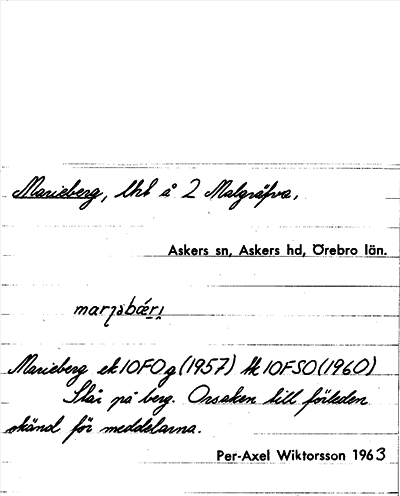 Marieberg, lht å 2 Malgräfva,
Askers sn, Askers hd, Örebro län.
Marieberg ek 10FOg (1957) Hk 10FSO (1960)
Står på berg. Orsaken till förleden
okänd för meddelarna.
Per-Axel Wiktorsson 1963